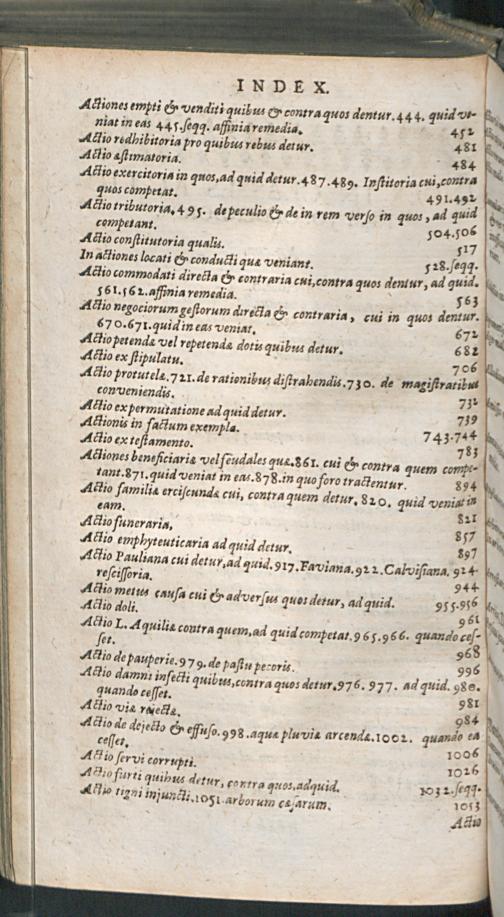 INDEX.
Actiones empti & venditi quibus & contra quos dentur.444. quid ve-
niat in eas 445.seqq. affinia remedia. 452
Actio redhibitoria pro quibus rebus detur. 481
Actio æstimatoria. 484
Actio exercitoria in quos,ad quid detur.487.489. Institoria cui,contra
quos competat. 491.492
Actio tributoria.495. de peculio & de in rem verso in quos, ad quid
competant. 504.506
Actio constitutoria qualis. 517
In actiones locati & conducti quæ veniant. 528.seqq.
Actio commodati directa & contraria cui,contra quos dentur, ad quid.
561.562.affinia remedia. 563
Actio negociorum gestorum directa & contraria, cui in quos dentur.
670.671.quid in eas veniat. 672
Actio petendæ vel repetendæ dotis quibus detur. 682
Actio ex stipulatu. 706
Actio protutelæ.721.de rationibus distrahendis.730. de magistratibus
conveniendis. 732
Actio ex permutatione ad quid detur. 739
Actionis in factum exempla. 743.744
Actio ex testamento. 783
Actiones beneficiariæ vel feudales quæ.861. cui & contra quem compe-
tant.871.quid veniat in eas.878.in quo foro tractentur. 894
Actio familiæ erciscundæ cui, contra quem detur.820. quid veniat in
eam. 821
Actio funeraria, 857
Actio emphyteuticaria ad quid detur. 897
Actio Pauliana cui detur,ad quid.917.Faviana.922.Calvisiana.924.
rescissoria. 944
Actio metus causa cui & adversus quos detur, ad quid. 955.956
Actio doli. 961
Actio L. Aquiliæ contra quem,ad quid competat.965.966. quando ces-
set. 968
Actio de pauperie.979.de pastu pecoris. 996
Actio damni infecti quibus,contra quos detur.976. 977. ad quid.980.
quando cesset. 981
Actio viæ rejectæ. 984
Actio de dejecto & effuso.998.aquæ pluviæ arcendæ.1002. quando ea
cesset. 1006
Actio servi corrupti. 1026
Actio furti quibus detur, contra quos,ad quid. 1032.seqq.
Actio tigni injuncti.1051.arborum cæsarum. 1053
Actio